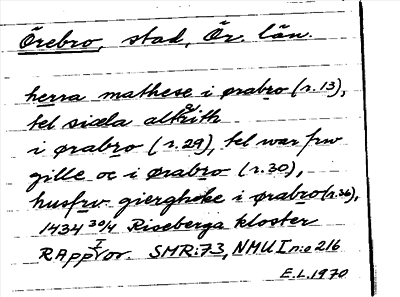 Örebro, stad, Ör. län.
herra mathese i ørabro (r.13),
tel siæla altrith
i ørabro (r.29), tel war frw
gille oc i ørabro (r.30),
husfrv giergheke i ørabro (r.36),
1434 30/4 Riseberga kloster
RApp I or. SMR:73, NMU I n:o 216
E.L. 1970